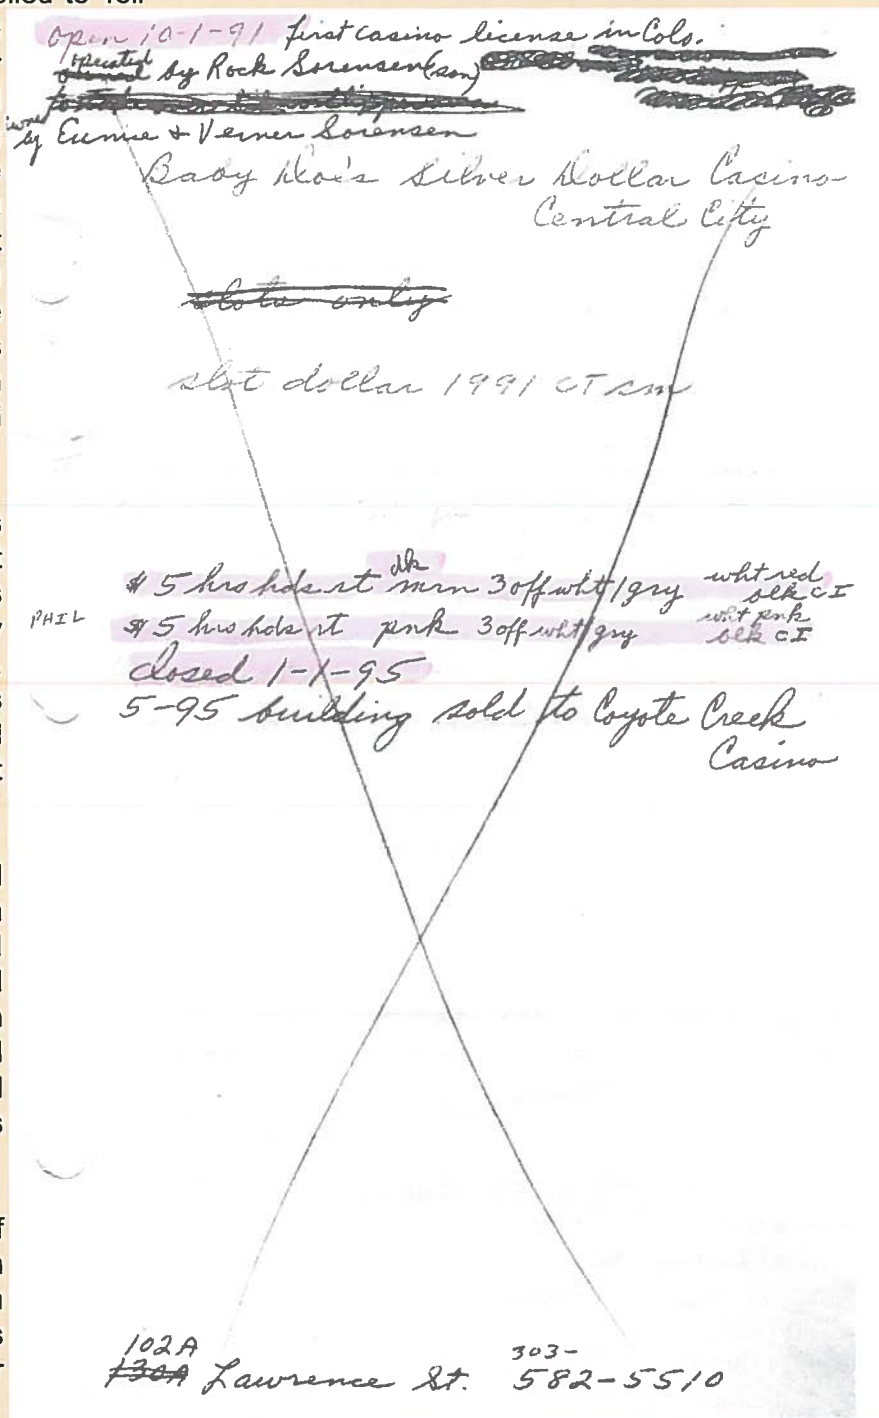 open 10-1-91 first casino license in Colo.
operated by Rock Sorensen (son)
owned by Eunice & Verner Sorensen
Baby Doe's Silver Dollar Casino
Central City
slots only
slot dollar 1991 CT sm
$5 hrs hds rt dk mrn 3 off wht/gry wht red blk CI
PHIL $5 hrs hds rt pnk 3 off wht/gry wht pnk blk CI
closed 1-1-95
5-95 building sold to Coyote Creek
Casino
102A
130A Lawrence St. 303-582-5510